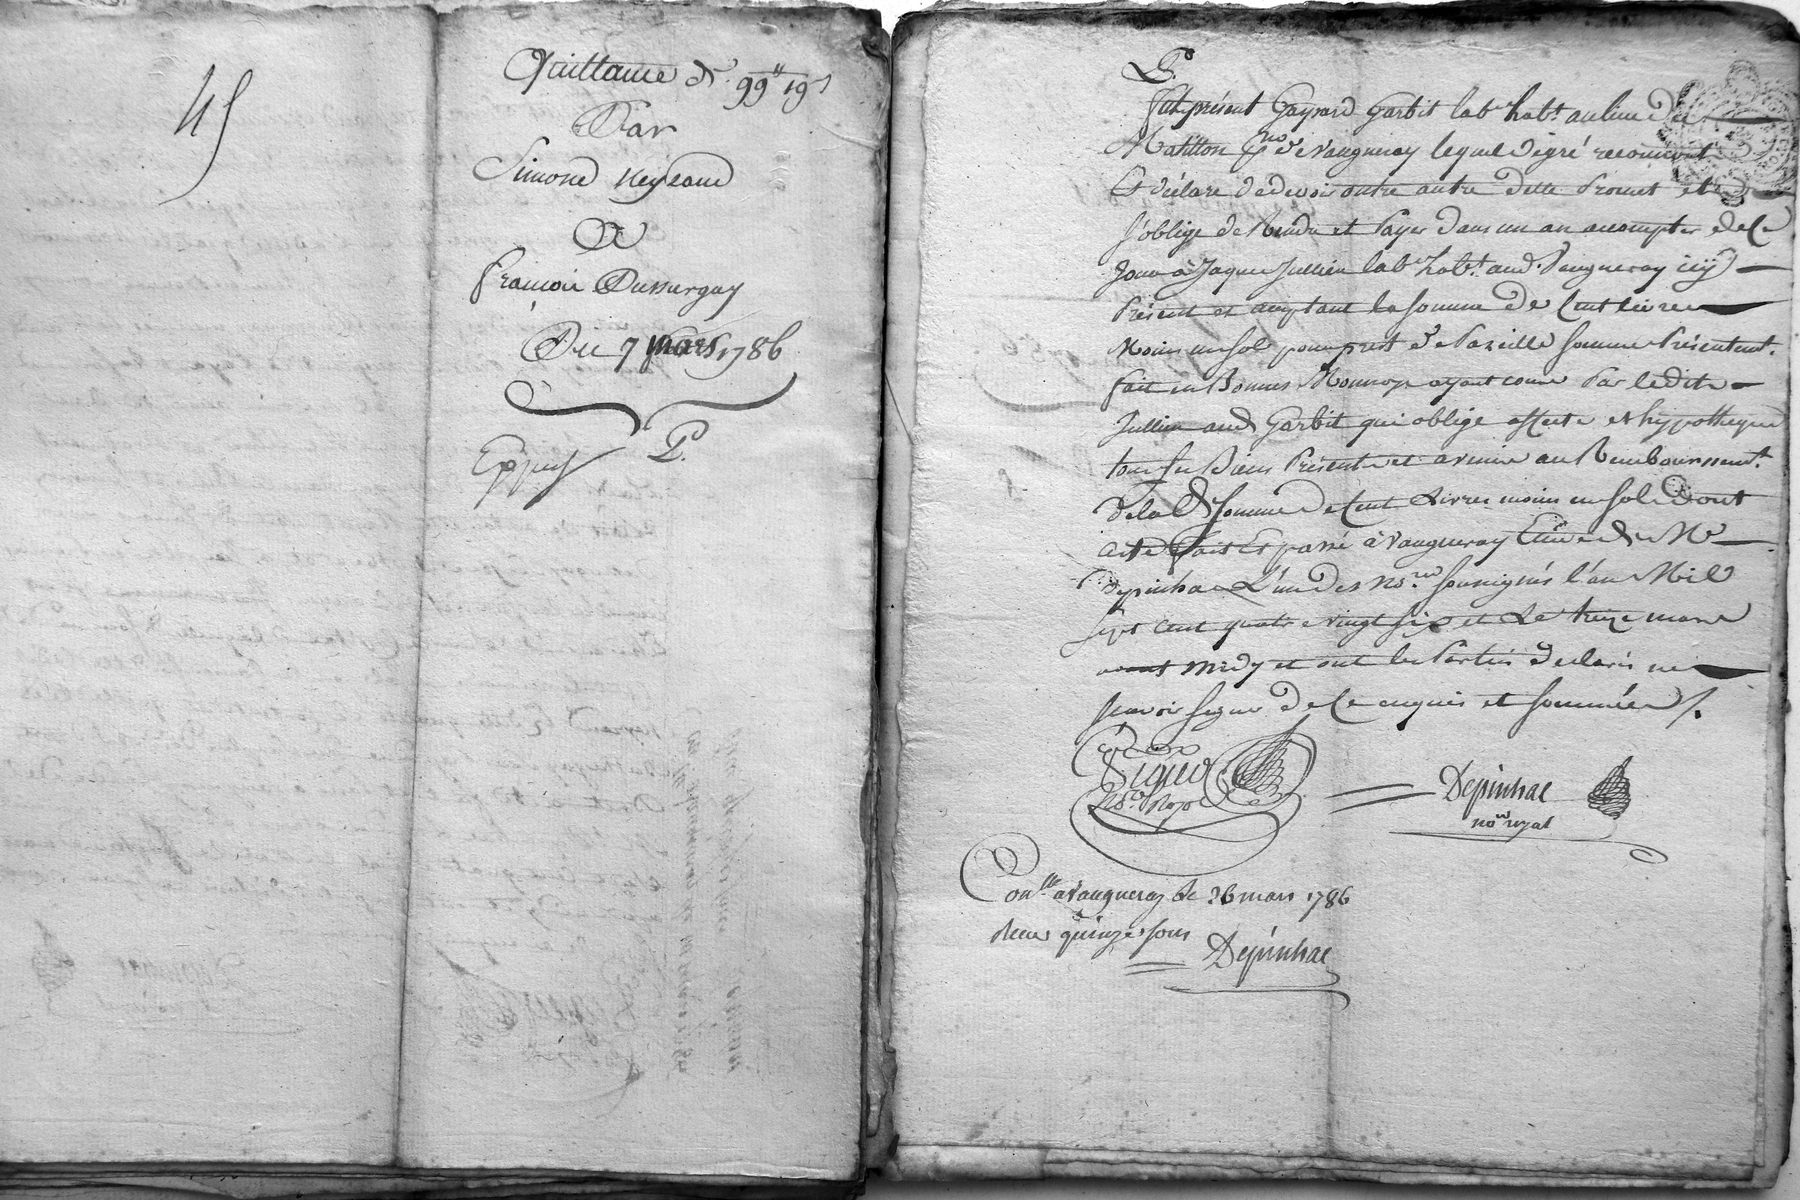 45
Quittance de 99ᵗᵗ 19ˢ
Par
Simone Neyrand
A
François Dussurgay
Du 7 mars 1786
Exped. P.
P.
Fut présent Gaspard Garbit labʳ habᵗ au lieu de
Matillon psse de Vaugneray lequel de gré reconnoit
Et déclare de devoir outre autre dette Promet et
s'oblige de Rendre et Payer dans un an a compter de ce
Jour a Jaque Jullien labʳ habᵗ aud. Vaugneray icy
Présent et acceptant la somme de Cent livres
Moins un sol pour prest de Pareille somme Présentemt.
fait en Bonnes Monnoye ayant cours Par ledit
Jullien aud Garbit qui oblige affecte et hypotheque
tous ses Biens Présents et avenir au Remboursement
de la dᵉ somme de Cent Livres moins un sol dont
acte fait Et passé à Vaugneray Etude de Mᵉ
Depinhac L'un des noʳᵉˢ soussignés l'an Mil
sept cent quatre vingt six et Le treize mars
avant midy et ont les Parties déclaré ne
scavoir signer de ce enquis et sommées /.
noʳᵉ roya
Depinhac
noʳᵉ royal
Conˡˡᵉ a Vaugneray le 26 mars 1786
Recu quinze sous
Depinhac